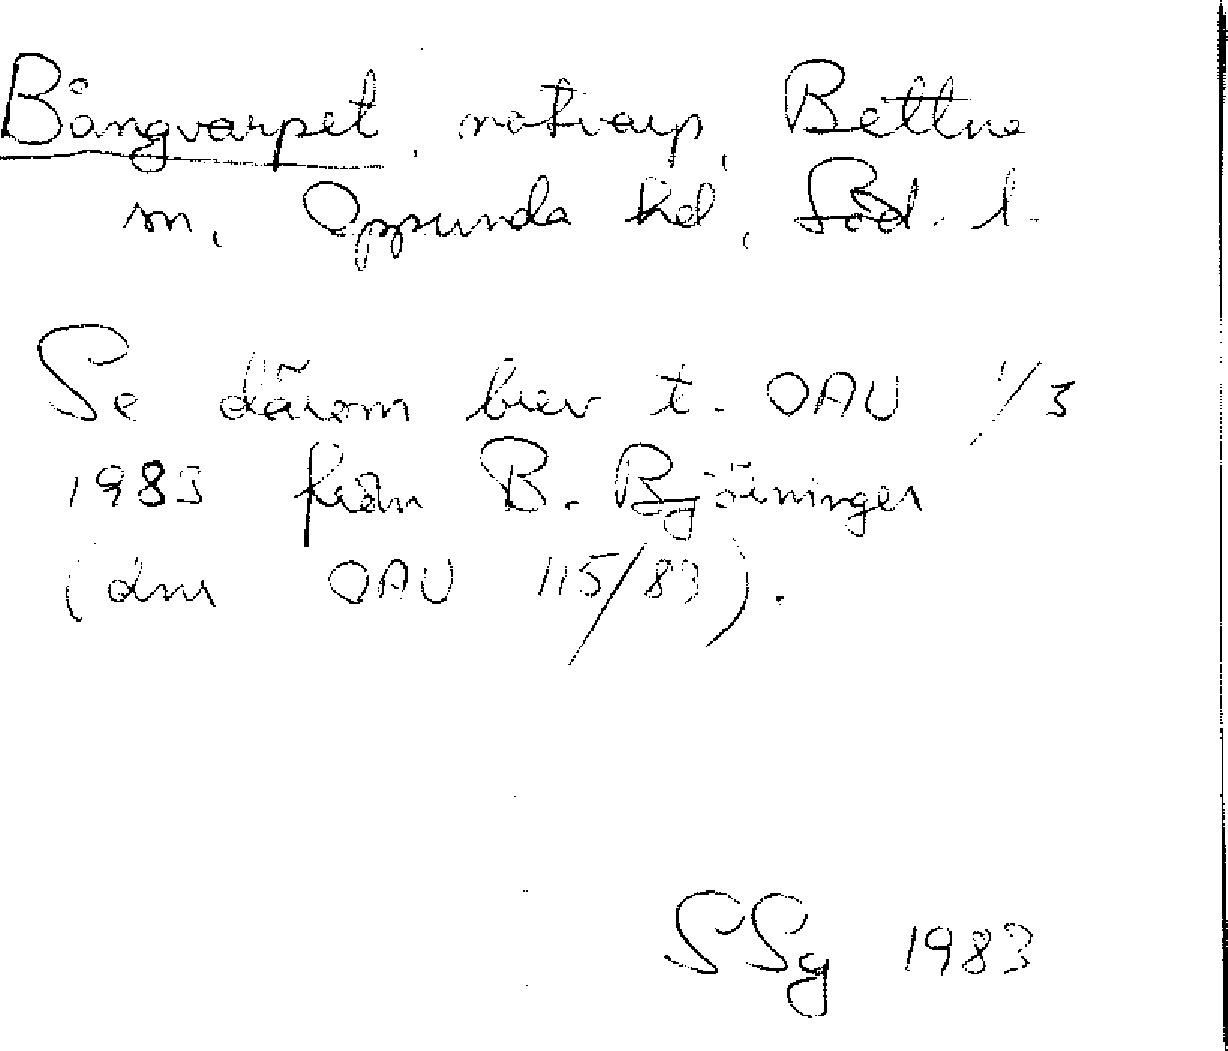 Bångvarpet, notvarp, Bettna
sn, Oppunda hd, Söd. l.
Se därom brev t. OAU 1/3
1983 från B. Björninger
(dnr OAU 115/83).
SSg 1983